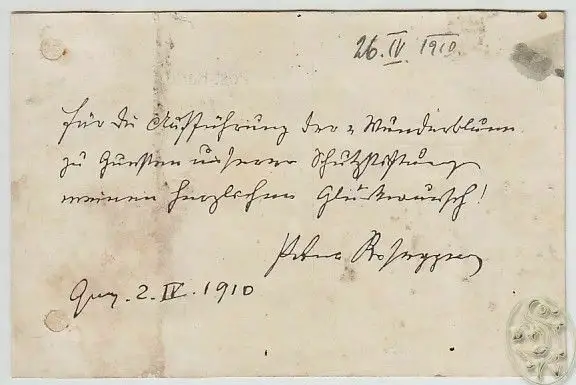 26. IV 1910.
Für die Aufführung der „Wunderblume
zu Gunsten unserer Schutzstiftung
meinen herzlichen Glückwunsch!
Peter Rosegger
Graz. 2. IV. 1910